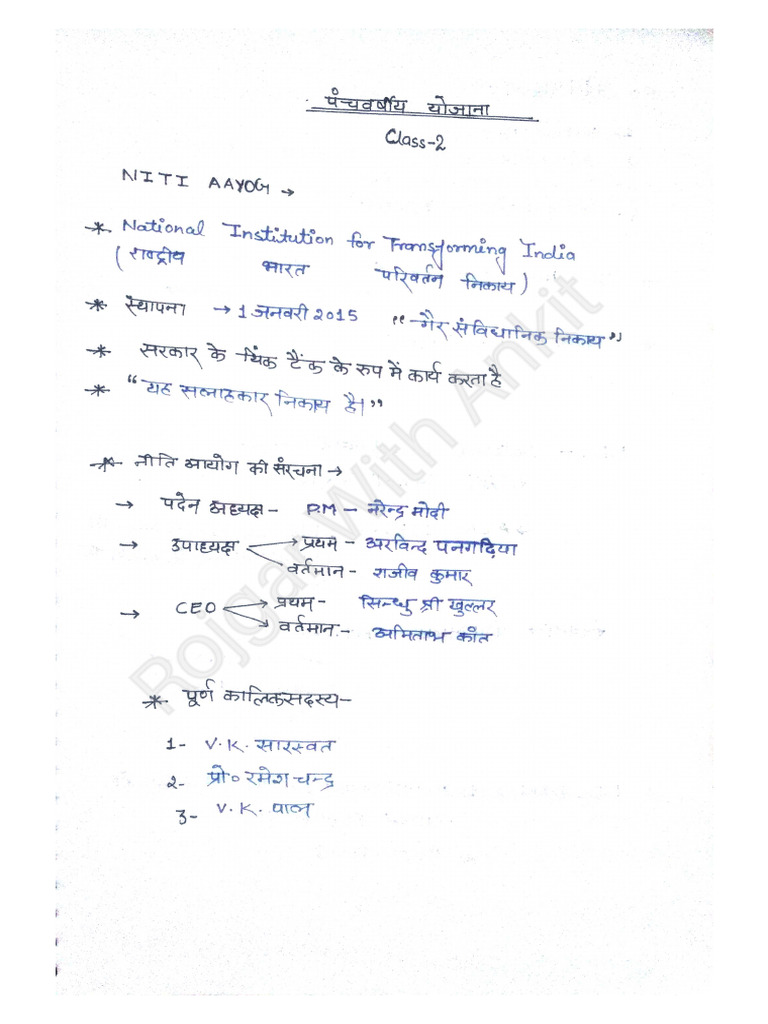 पंचवर्षीय योजाना
Class-2
NITI AAYOG →
* National Institution for Transforming India
(राष्ट्रीय भारत परिवर्तन निकाय)
* स्थापना → 1 जनवरी 2015 "गैर संविधानिक निकाय"
* सरकार के थिंक टैंक के रुप में कार्य करता है
* "यह सलाहकार निकाय है।"
* नीति आयोग की संरचना →
→ पदेन अध्यक्ष - P.M - नरेन्द्र मोदी
→ उपाध्यक्ष → प्रथम - अरविन्द पनगढ़िया
वर्तमान - राजीव कुमार
→ CEO → प्रथम - सिन्धु श्री खुल्लर
→ वर्तमान - अमिताभ कांत
* पूर्ण कालिक सदस्य -
1- V.K. सारस्वत
2- प्रो० रमेश चन्द्र
3- V.K. पाल
Rojgar With Ankit